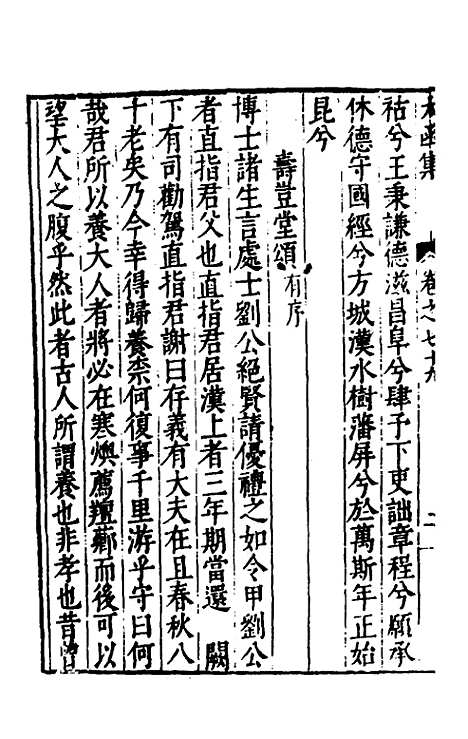 祜兮王秉謙德滋昌阜兮肆予下吏詘章程兮願承
休德守國經兮方城漢水樹藩屏兮於萬斯年正始
昆兮
壽豈堂頌有序
博士諸生言處士劉公絕賢請優禮之如令甲劉公
者直指君父也直指君居漢上者三年期當還 闕
下有司勸駕直指君謝曰存義有大夫在且春秋八
十老矣乃今幸得歸養柰何復事千里游乎守曰何
哉君所以養大人者將必在寒燠薦羶薌而後可以
望大人之腹乎然此者古人所謂養也非孝也昔